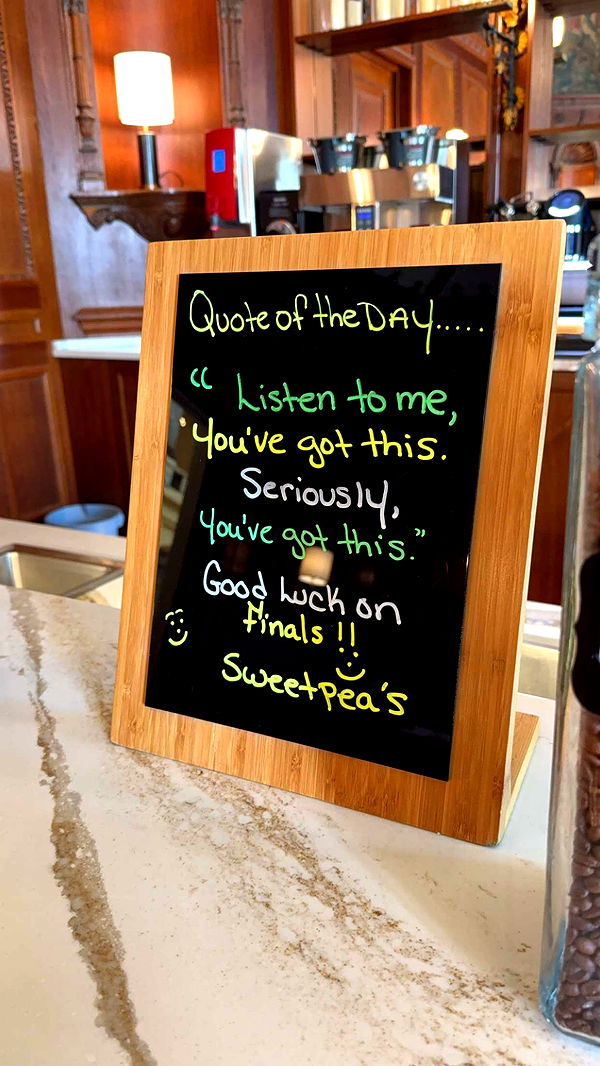 Quote of the DAY.....
“ Listen to me,
You've got this.
Seriously,
You've got this.”
Good Luck on
finals !!
Sweetpea's